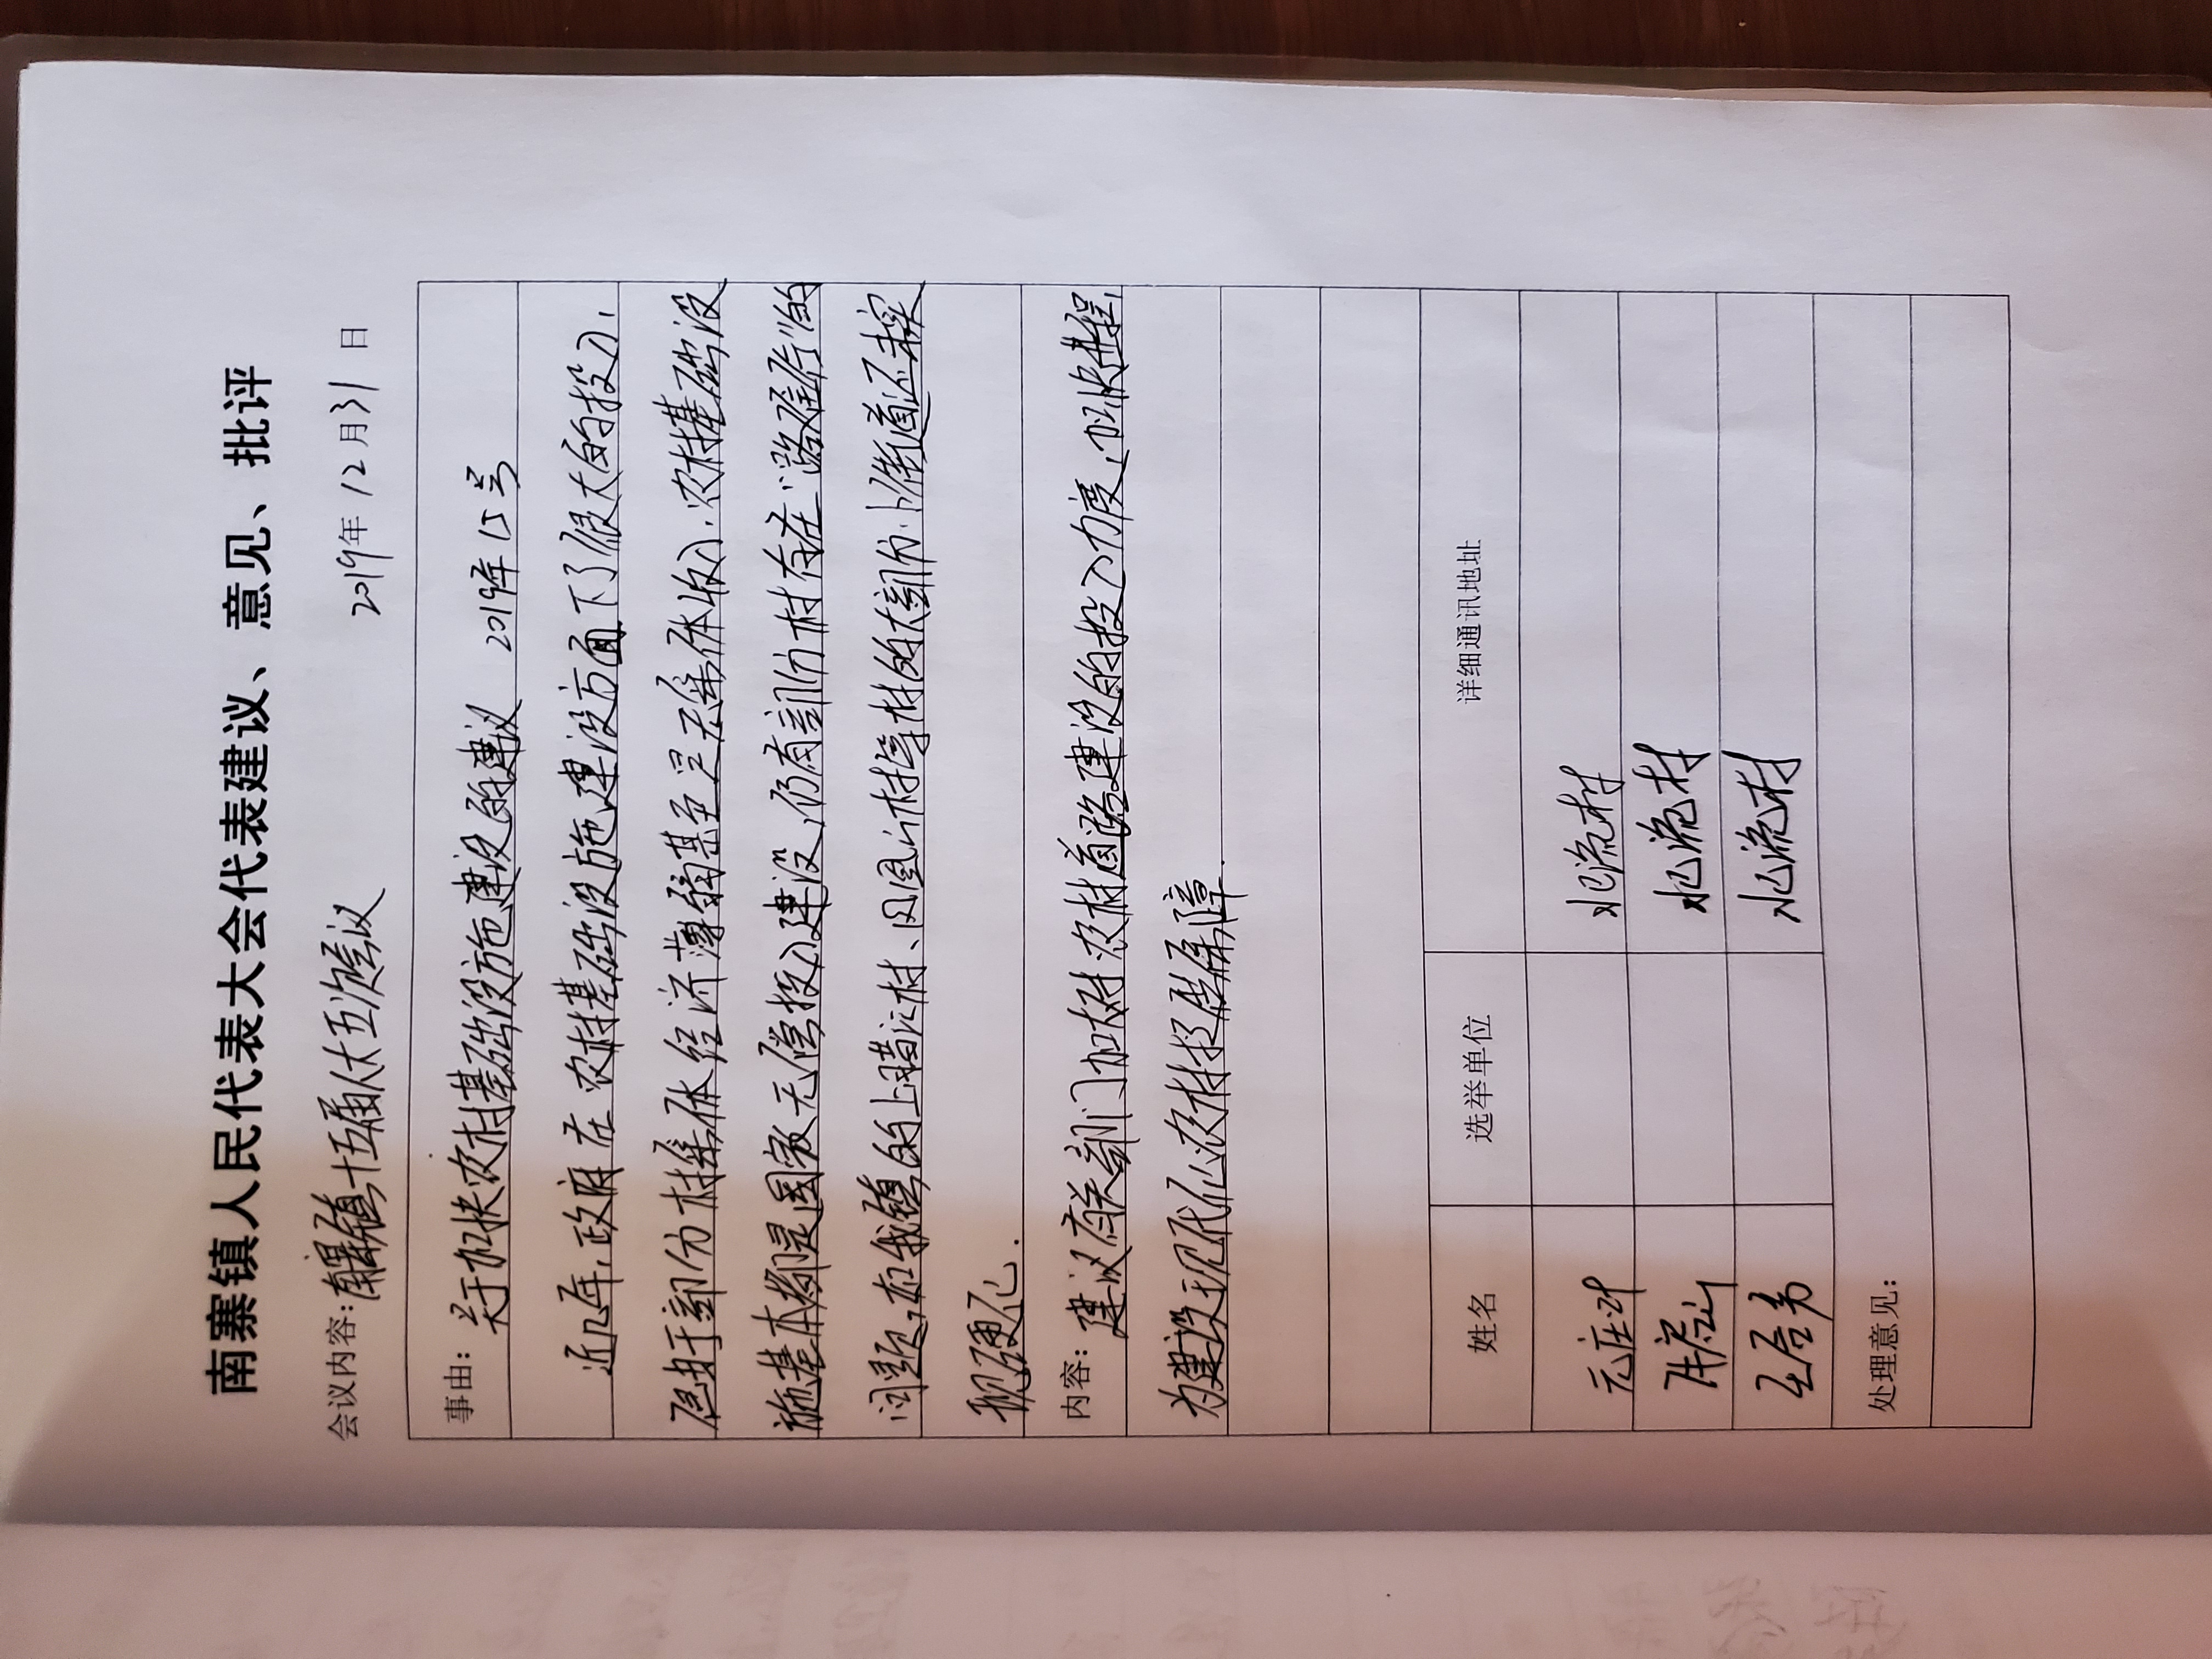 南寨镇人民代表大会代表建议、意见、批评
会议内容：南寨镇十五届人大五次会议 2019年12月31日
事由：关于加快农村基础设施建设的建议 2019年15号
近几年，政府在农村基础设施建设方面下了很大的投入，
但由于部分村集体经济薄弱甚至是无集体收入，农村基础设
施基本都是国家无偿投入建设，仍有部分村存在“路难行”的
问题，如我镇的上 村、 村等村的大部份小街道还未实
现硬化。
内容：建议有关部门加大对农村道路建设的投入力度，加快进程，
为建设现代化农村提供保障。
姓名 选举单位 详细通讯地址
水流村
水流村
水流村
处理意见：